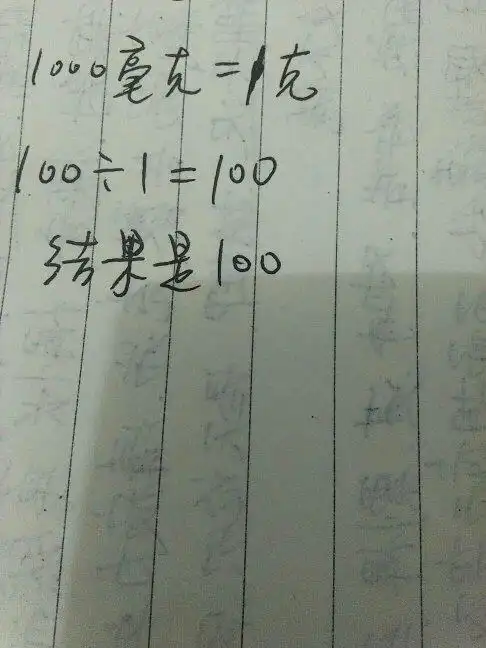 1000毫克=1克
100÷1=100
结果是100